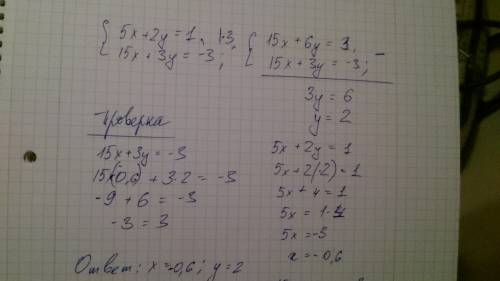 { 5x+2y=1, |·3, { 15x+6y=3, −
15x+3y=-3; 15x+3y=-3;
3y=6
y=2
Проверка
15x+3y=-3
15×(0,6)+3·2=-3
-9+6=-3
-3=3
5x+2y=1
5x+2(2)=1
5x+4=1
5x=1-4
5x=-3
x=-0,6
Ответ: x=-0,6; y=2